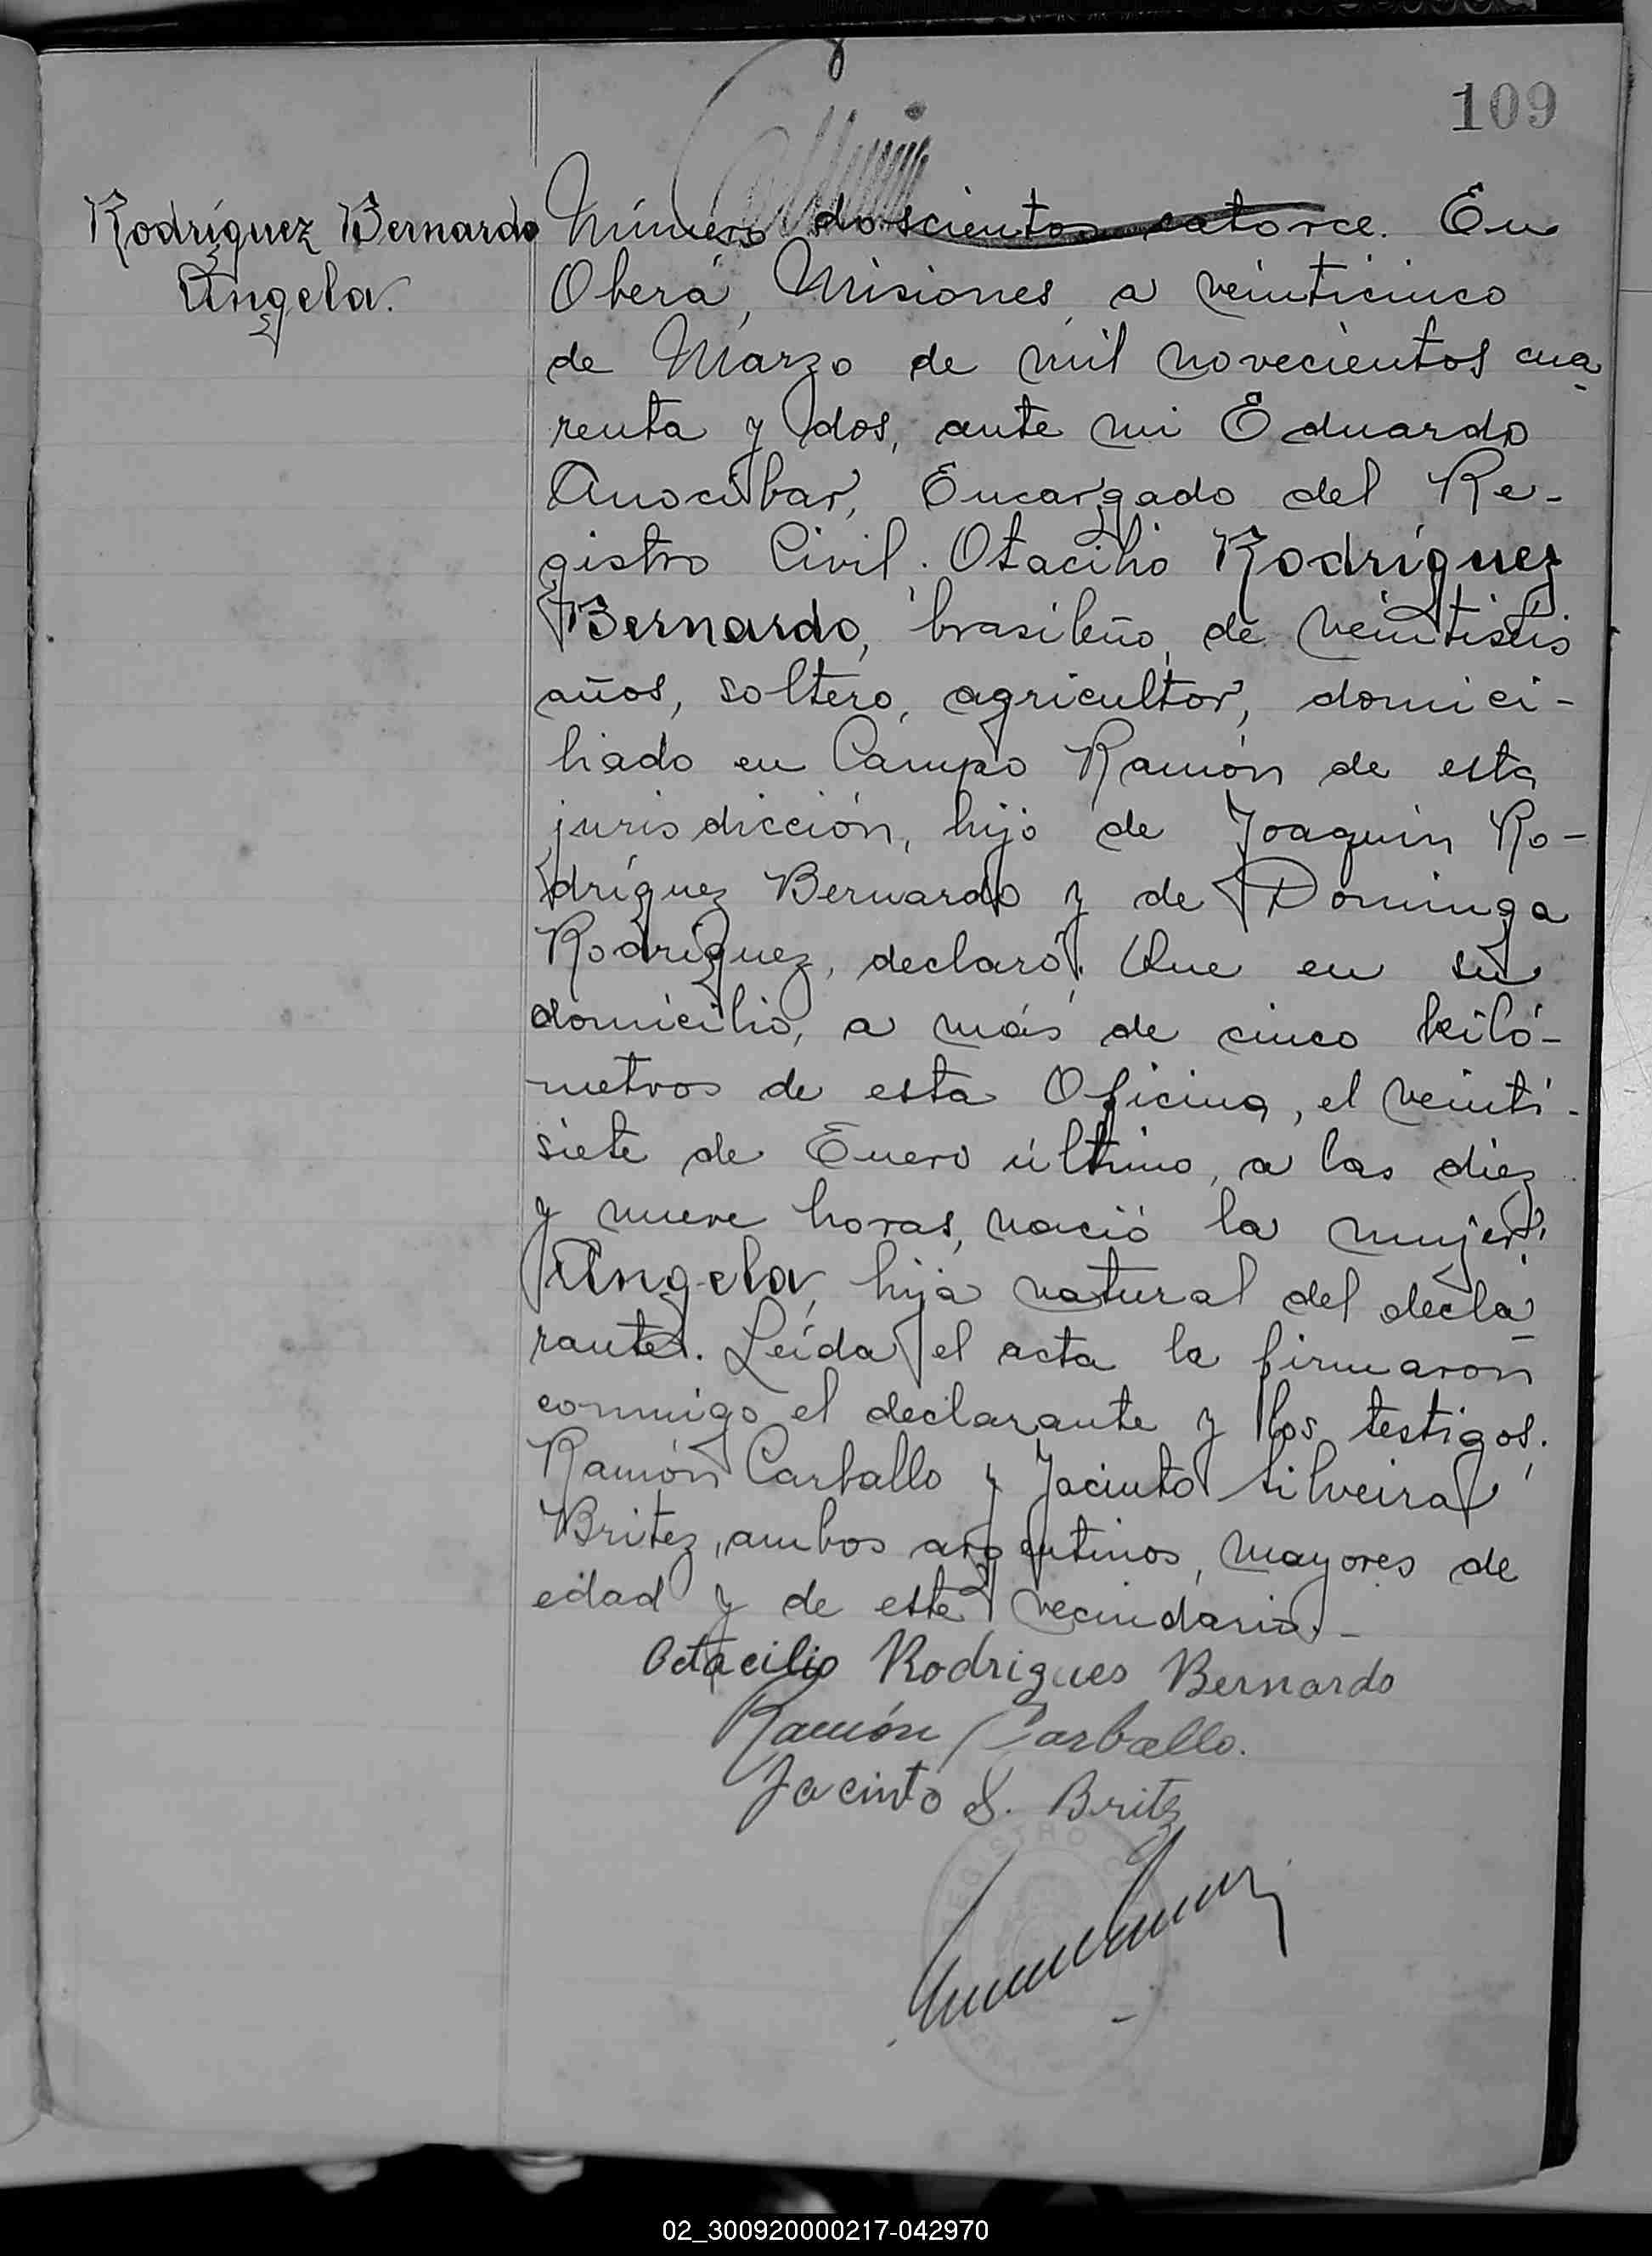 109
Rodríguez Bernardo
Angela.
Número doscientos catorce. En
Oberá, Misiones, a veinticinco
de Marzo de mil novecientos cua
renta y dos, ante mi Eduardo
Anocibar, Encargado del Re-
gistro Civil. Otacilio Rodríguez
Bernardo, brasileño, de veintiséis
años, soltero, agricultor, domici-
liado en Campo Ramón de esta
jurisdicción, hijo de Joaquín Ro-
dríguez Bernardo y de Dominga
Rodríguez, declaró: Que en su
domicilio, a más de cinco kiló-
metros de esta Oficina, el veinti-
siete de Enero último, a las diez
y nueve horas, nació la mujer:
Angela, hija natural del decla
rante. Leída el acta la firmaron
conmigo el declarante y los testigos:
Ramón Carballo y Jacinto Silveira
Britez, ambos argentinos, mayores de
edad y de este vecindario.-
Octacilio Rodrigues Bernardo
Ramón Carballo.
Jacinto S. Britez
02_300920000217-042970